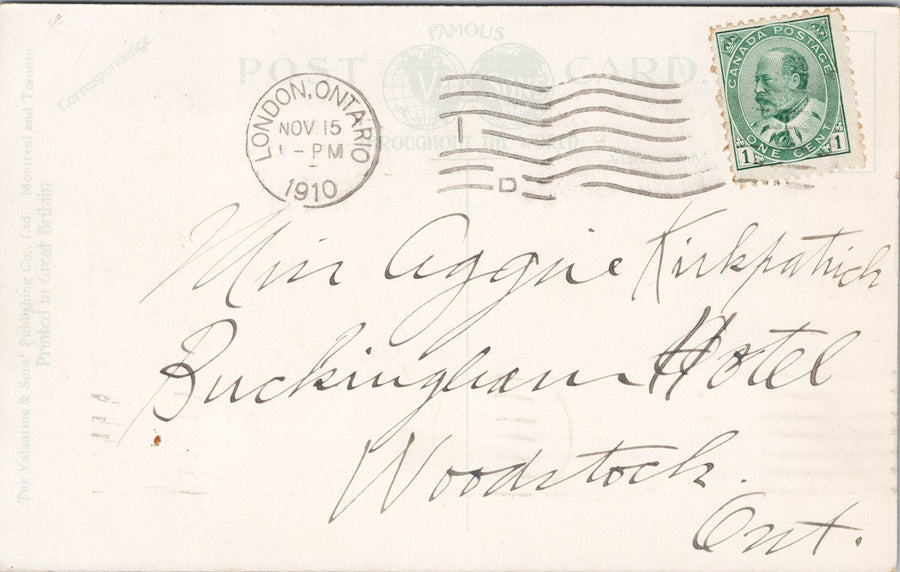 FAMOUS
POST CARD
THROUGHOUT THE WORLD
Correspondence
The Valentine & Sons' Publishing Co., Ltd. Montreal and Toronto
Printed in Great Britain
LONDON, ONTARIO
NOV 15
1 - PM
1910
D
CANADA POSTAGE
1 ONE CENT 1
Miss Aggie Kirkpatrick
Buckingham Hotel
Woodstock.
Ont.